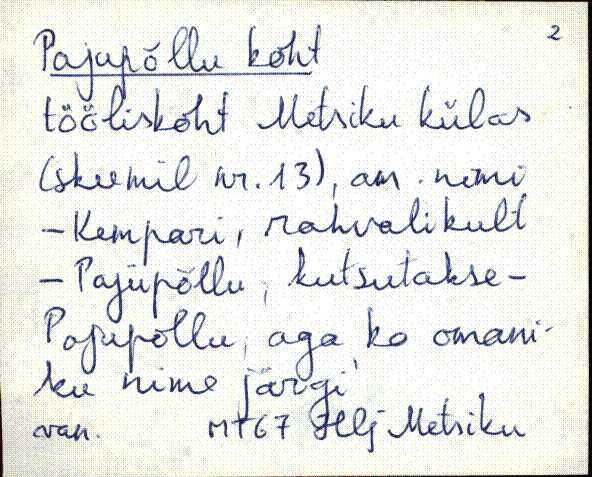 2
Pajupõllu koht
tööliskoht Metsiku külas
(skeemil nr. 13), am. nimi
- Kempari, rahvalikult
- Pajupõllu, kutsutakse -
Pajupõllu, aga ka omani-
ku nime järgi
van. MT67 Hlj Metsiku